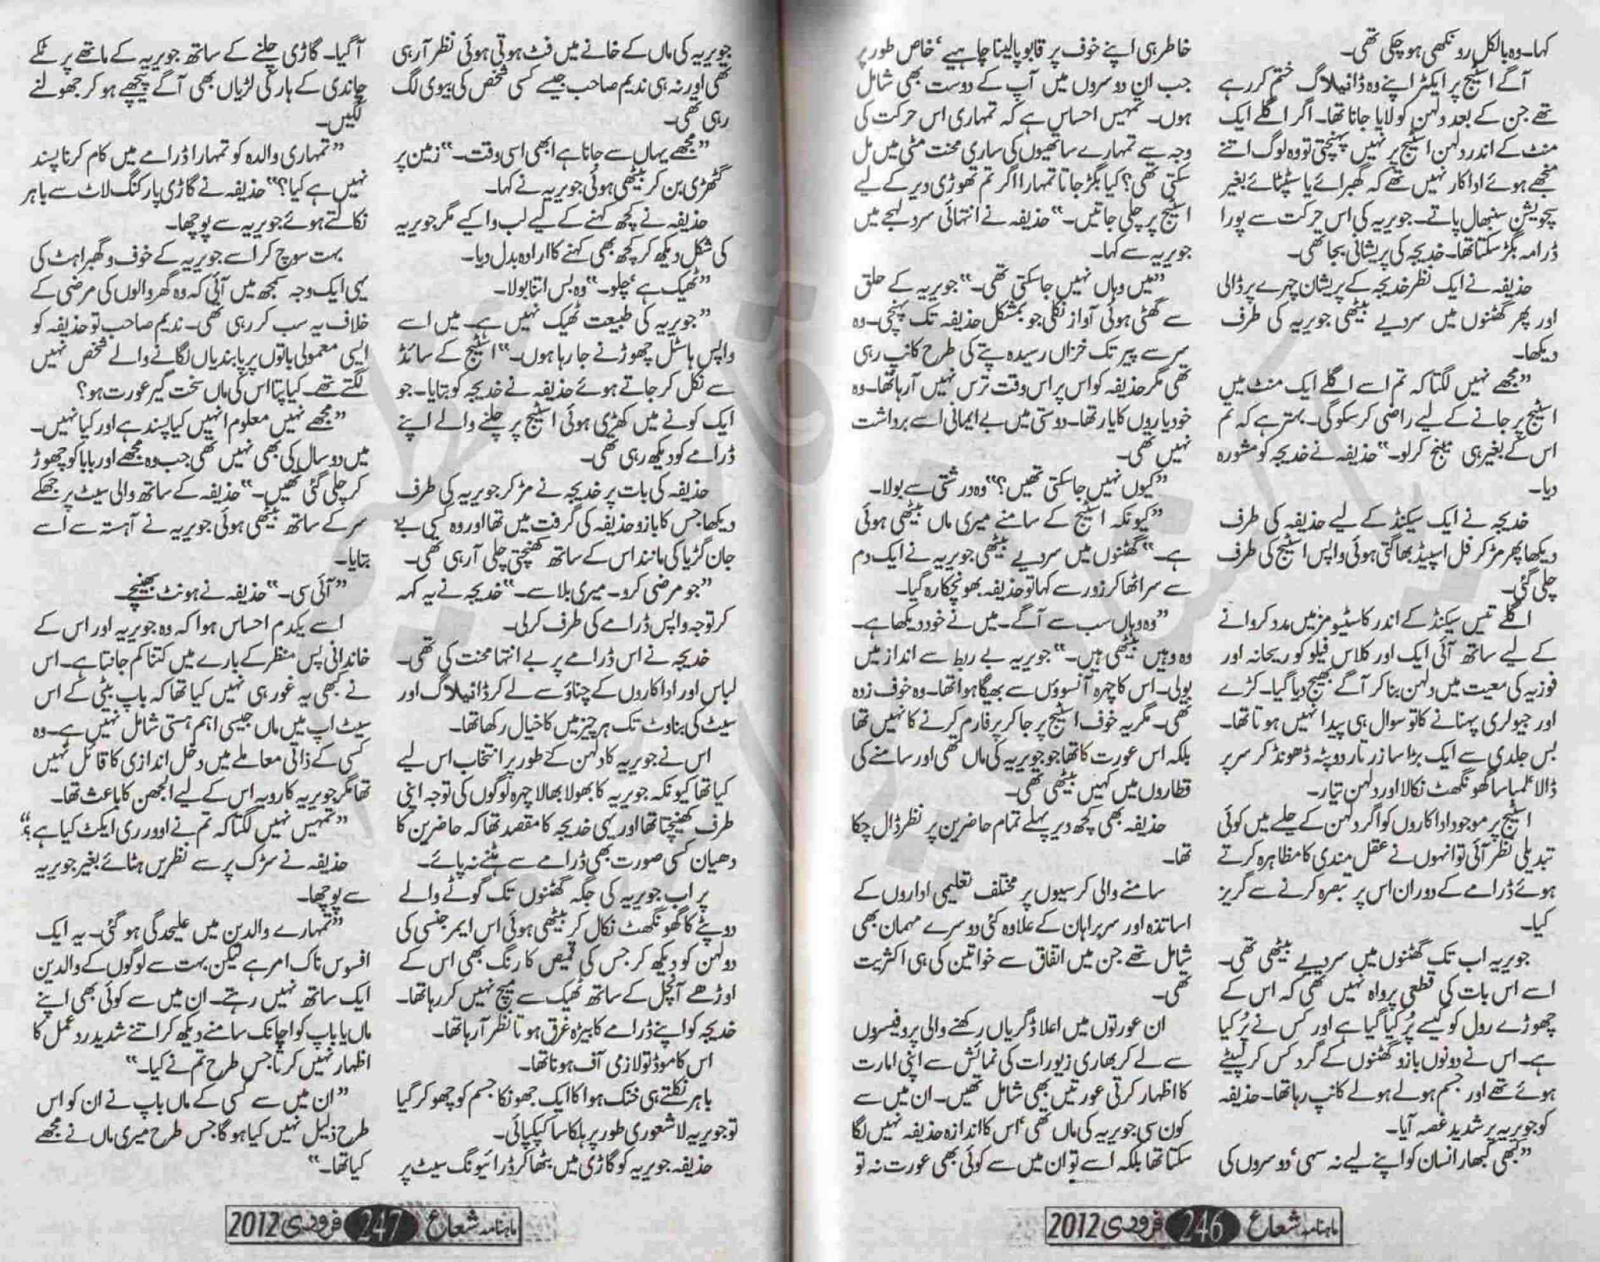 کہا۔ وہ بالکل رونکھی ہو چکی تھی۔
آگے اسٹیج پر ایکٹر اپنے وہ ڈائیلاگ ختم کر رہے
تھے جن کے بعد دلہن کو لایا جانا تھا۔ اگر اگلے ایک
منٹ کے اندر دلہن اسٹیج پر نہیں پہنچتی تو وہ لوگ اتنے
منجھے ہوئے اداکار نہیں تھے کہ گھبرائے یا سٹپٹائے بغیر
سچویشن سنبھال پاتے۔ جویریہ کی اس حرکت سے پورا
ڈرامہ بگڑ سکتا تھا۔ خدیجہ کی پریشانی بجا تھی۔
حذیفہ نے ایک نظر خدیجہ کے پریشان چہرے پر ڈالی
اور پھر گھٹنوں میں سر دیے بیٹھی جویریہ کی طرف
دیکھا۔
”مجھے نہیں لگتا کہ تم اسے اگلے ایک منٹ میں
اسٹیج پر جانے کے لیے راضی کر سکو گی۔ بہتر ہے کہ تم
اس کے بغیر ہی مینج کر لو۔“ حذیفہ نے خدیجہ کو مشورہ
دیا۔
خدیجہ نے ایک سیکنڈ کے لیے حذیفہ کی طرف
دیکھا پھر مڑ کر فل اسپیڈ بھاگتی ہوئی واپس اسٹیج کی طرف
چلی گئی۔
اگلے تیس سیکنڈ کے اندر کاسٹیومز میں مدد کروانے
کے لیے ساتھ آئی ایک اور کلاس فیلو کو ریحانہ اور
فوزیہ کی معیت میں دلہن بنا کر آگے بھیج دیا گیا۔ کڑے
اور جیولری پہنانے کا تو سوال ہی پیدا نہیں ہوتا تھا۔
بس جلدی سے ایک بڑا سا زرتار دوپٹہ ڈھونڈ کر سر پر
ڈالا‘ لمبا سا گھونگھٹ نکالا اور دلہن تیار۔
اسٹیج پر موجود اداکاروں کو اگر دلہن کے حلیے میں کوئی
تبدیلی نظر آئی تو انہوں نے عقل مندی کا مظاہرہ کرتے
ہوئے ڈرامے کے دوران اس پر تبصرہ کرنے سے گریز
کیا۔
جویریہ اب تک گھٹنوں میں سر دیے بیٹھی تھی۔
اسے اس بات کی قطعی پرواہ نہیں تھی کہ اس کے
چھوڑے رول کو کیسے پُر کیا گیا ہے اور کس نے پُر کیا
ہے۔ اس نے دونوں بازو گھٹنوں کے گرد کس کر لپیٹے
ہوئے تھے اور جسم ہولے ہولے کانپ رہا تھا۔ حذیفہ
کو جویریہ پر شدید غصہ آیا۔
”کبھی کبھار انسان کو اپنے لیے نہ سہی‘ دوسروں کی
خاطر ہی اپنے خوف پر قابو پا لینا چاہیے‘ خاص طور پر
جب ان دوسروں میں آپ کے دوست بھی شامل
ہوں۔ تمہیں احساس ہے کہ تمہاری اس حرکت کی
وجہ سے تمہارے ساتھیوں کی ساری محنت مٹی میں مل
سکتی تھی؟ کیا بگڑ جاتا تمہارا اگر تم تھوڑی دیر کے لیے
اسٹیج پر چلی جاتیں۔“ حذیفہ نے انتہائی سرد لہجے میں
جویریہ سے کہا۔
”میں وہاں نہیں جا سکتی تھی۔“ جویریہ کے حلق
سے گھٹی ہوئی آواز نکلی جو بمشکل حذیفہ تک پہنچی۔ وہ
سر سے پیر تک خزاں رسیدہ پتے کی طرح کانپ رہی
تھی مگر حذیفہ کو اس پر اس وقت ترس نہیں آ رہا تھا۔ وہ
خود یاروں کا یار تھا۔ دوستی میں بے ایمانی اسے برداشت
نہیں تھی۔
”کیوں نہیں جا سکتی تھیں؟“ وہ درشتی سے بولا۔
”کیونکہ اسٹیج کے سامنے میری ماں بیٹھی ہوئی
ہے۔“ گھٹنوں میں سر دیے بیٹھی جویریہ نے ایک دم
سے سر اٹھا کر زور سے کہا تو حذیفہ بھونچکا رہ گیا۔
”وہ وہاں سب سے آگے۔ میں نے خود دیکھا ہے۔
وہ وہیں بیٹھی ہیں۔“ جویریہ بے ربط سے انداز میں
بولی۔ اس کا چہرہ آنسوؤں سے بھیگا ہوا تھا۔ وہ خوف زدہ
تھی۔ مگر یہ خوف اسٹیج پر جا کر پرفارم کرنے کا نہیں تھا
بلکہ اس عورت کا تھا جو جویریہ کی ماں تھی اور سامنے کی
قطاروں میں کہیں بیٹھی تھی۔
حذیفہ بھی کچھ دیر پہلے تمام حاضرین پر نظر ڈال چکا
تھا۔
سامنے والی کرسیوں پر مختلف تعلیمی اداروں کے
اساتذہ اور سربراہان کے علاوہ کئی دوسرے مہمان بھی
شامل تھے جن میں اتفاق سے خواتین کی ہی اکثریت
تھی۔
ان عورتوں میں اعلا ڈگریاں رکھنے والی پروفیسروں
سے لے کر بھاری زیورات کی نمائش سے اپنی امارت
کا اظہار کرتی عورتیں بھی شامل تھیں۔ ان میں سے
کون سی جویریہ کی ماں تھی‘ اس کا اندازہ حذیفہ نہیں لگا
سکتا تھا بلکہ اسے تو ان میں سے کوئی بھی عورت نہ تو
ماہنامہ شعاع 246 فروری 2012
جویریہ کی ماں کے خانے میں فٹ ہوتی ہوئی نظر آ رہی
تھی اور نہ ہی ندیم صاحب جیسے کسی شخص کی بیوی لگ
رہی تھی۔
”مجھے یہاں سے جانا ہے ابھی اسی وقت۔“ زمین پر
گٹھڑی بن کر بیٹھی ہوئی جویریہ نے کہا۔
حذیفہ نے کچھ کہنے کے لیے لب وا کیے مگر جویریہ
کی شکل دیکھ کر کچھ بھی کہنے کا ارادہ بدل دیا۔
”ٹھیک ہے‘ چلو۔“ وہ بس اتنا بولا۔
”جویریہ کی طبیعت ٹھیک نہیں ہے۔ میں اسے
واپس ہاسٹل چھوڑنے جا رہا ہوں۔“ اسٹیج کے سائڈ
سے نکل کر جاتے ہوئے حذیفہ نے خدیجہ کو بتایا۔ جو
ایک کونے میں کھڑی ہوئی اسٹیج پر چلنے والے اپنے
ڈرامے کو دیکھ رہی تھی۔
حذیفہ کی بات پر خدیجہ نے مڑ کر جویریہ کی طرف
دیکھا جس کا بازو حذیفہ کی گرفت میں تھا اور وہ کسی بے
جان گڑیا کی مانند اس کے ساتھ کھنچتی چلی آ رہی تھی۔
”جو مرضی کرو۔ میری بلا سے۔“ خدیجہ نے یہ کہہ
کر توجہ واپس ڈرامے کی طرف کر لی۔
خدیجہ نے اس ڈرامے پر بے انتہا محنت کی تھی۔
لباس اور اداکاروں کے چناؤ سے لے کر ڈائیلاگ اور
سیٹ کی بناوٹ تک ہر چیز میں کا خیال رکھا تھا۔
اس نے جویریہ کا دلہن کے طور پر انتخاب اس لیے
کیا تھا کیونکہ جویریہ کا بھولا بھالا چہرہ لوگوں کی توجہ اپنی
طرف کھینچتا تھا اور یہی خدیجہ کا مقصد تھا کہ حاضرین کا
دھیان کسی صورت بھی ڈرامے سے ہٹنے نہ پائے۔
پر اب جویریہ کی جگہ گھٹنوں تک گوٹے والے
دوپٹے کا گھونگھٹ نکال کر بیٹھی ہوئی اس ایمرجنسی کی
دولہن کو دیکھ کر جس کی قمیص کا رنگ بھی اس کے
اوڑھے آنچل کے ساتھ ٹھیک سے میچ نہیں کر رہا تھا۔
خدیجہ کو اپنے ڈرامے کا بیڑہ غرق ہوتا نظر آ رہا تھا۔
اس کا موڈ تو لازمی آف ہونا تھا۔
باہر نکلتے ہی خنک ہوا کا ایک جھونکا جسم کو چھو کر گیا
تو جویریہ لاشعوری طور پر ہلکا سا کپکپائی۔
حذیفہ جویریہ کو گاڑی میں بٹھا کر ڈرائیونگ سیٹ پر
آ گیا۔ گاڑی چلنے کے ساتھ جویریہ کے ماتھے پر ٹکے
چاندی کے ہار کی لڑیاں بھی آگے پیچھے ہو کر جھولنے
لگیں۔
”تمہاری والدہ کو تمہارا ڈرامے میں کام کرنا پسند
نہیں ہے کیا؟“ حذیفہ نے گاڑی پارکنگ لاٹ سے باہر
نکالتے ہوئے جویریہ سے پوچھا۔
بہت سوچ کر اسے جویریہ کے خوف و گھبراہٹ کی
یہی ایک وجہ سمجھ میں آئی کہ وہ گھر والوں کی مرضی کے
خلاف یہ سب کر رہی تھی۔ ندیم صاحب تو حذیفہ کو
ایسی معمولی باتوں پر پابندیاں لگانے والے شخص نہیں
لگتے تھے۔ کیا پتا اس کی ماں سخت گیر عورت ہو؟
”مجھے نہیں معلوم انہیں کیا پسند ہے اور کیا نہیں۔
میں دو سال کی بھی نہیں تھی جب وہ مجھے اور بابا کو چھوڑ
کر چلی گئی تھیں۔“ حذیفہ کے ساتھ والی سیٹ پر جھکے
سر کے ساتھ بیٹھی ہوئی جویریہ نے آہستہ سے اسے
بتایا۔
”آئی سی۔“ حذیفہ نے ہونٹ بھینچے۔
اسے یکدم احساس ہوا کہ وہ جویریہ اور اس کے
خاندانی پس منظر کے بارے میں کتنا کم جانتا ہے۔ اس
نے کبھی یہ غور ہی نہیں کیا تھا کہ باپ بیٹی کے اس
سیٹ اپ میں ماں جیسی اہم ہستی شامل نہیں ہے۔ وہ
کسی کے ذاتی معاملے میں دخل اندازی کا قائل نہیں
تھا مگر جویریہ کا رویہ اس کے لیے الجھن کا باعث تھا۔
”تمہیں نہیں لگتا کہ تم نے اوور ری ایکٹ کیا ہے؟“
حذیفہ نے سڑک پر سے نظریں ہٹائے بغیر جویریہ
سے پوچھا۔
”تمہارے والدین میں علیحدگی ہو گئی۔ یہ ایک
افسوس ناک امر ہے لیکن بہت سے لوگوں کے والدین
ایک ساتھ نہیں رہتے۔ ان میں سے کوئی بھی اپنے
ماں یا باپ کو اچانک سامنے دیکھ کر اتنے شدید رد عمل کا
اظہار نہیں کرتا جس طرح تم نے کیا۔“
”ان میں سے کسی کے ماں باپ نے ان کو اس
طرح ذلیل نہیں کیا ہو گا جس طرح میری ماں نے مجھے
کیا تھا۔“
ماہنامہ شعاع 247 فروری 2012